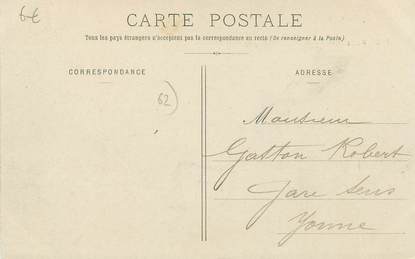 6€
CARTE POSTALE
Tous les pays étrangers n'acceptent pas la correspondance au recto (Se renseigner à la Poste)
CORRESPONDANCE
62
ADRESSE
Monsieur
Gaston Robert
Gare Sens
Yonne